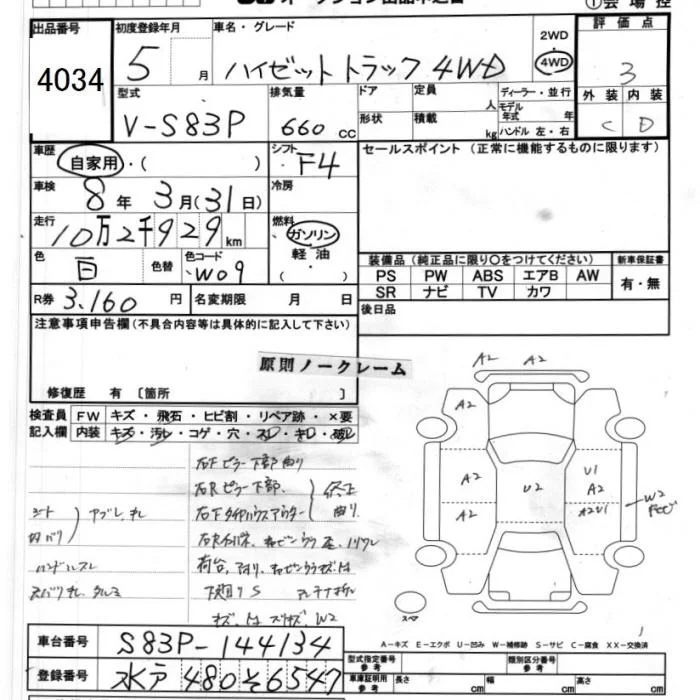 出品番号
4034
初度登録年月
5 月
車名・グレード
ハイゼットトラック 4WD
2WD
・
4WD
評価点
3
外装 内装
C D
型式
V-S83P
排気量
660 cc
ドア
形状
定員 人
積載 kg
ディーラー・並行
モデル年式 年
ハンドル 左・右
車歴
自家用・( )
シフト
F4
セールスポイント (正常に機能するものに限ります)
車検
8年 3月(31日)
冷房
走行
10万2千929 km
燃料
ガソリン
・
軽油
色
白
色替
色コード
W09
装備品 (純正品に限り○をつけてください)
PS PW ABS エアB AW
SR ナビ TV カワ
新車保証書
有・無
R券 3.160 円
名変期限 月 日
後日品
注意事項申告欄(不具合内容等は具体的に記入して下さい)
原則ノークレーム
修復歴 有 〔箇所 〕
検査員記入欄
FW キズ・飛石・ヒビ割・リペア跡・×要
内装 キズ・汚レ・コゲ・穴・スレ・キレ・破レ
右Fピラー下部曲り
右Rピラー下部
シート
ヤブレ
ハンドルスレ
A2 A2
A2
A2
A2
U2
U1
A2
A2U1
W2
スペア
A-キズ E-エクボ U-凹み W-補修跡 S-サビ C-腐食 XX-交換済
車台番号
S83P-144134
登録番号
水戸 480 そ 6547
型式指定番号
参考
類別区分番号
参考
車庫証明用
参考
長さ cm
幅 cm
高さ cm